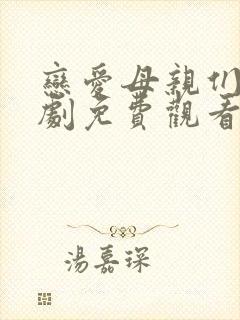 戀愛母親们
劇免費觀看
湯嘉琛